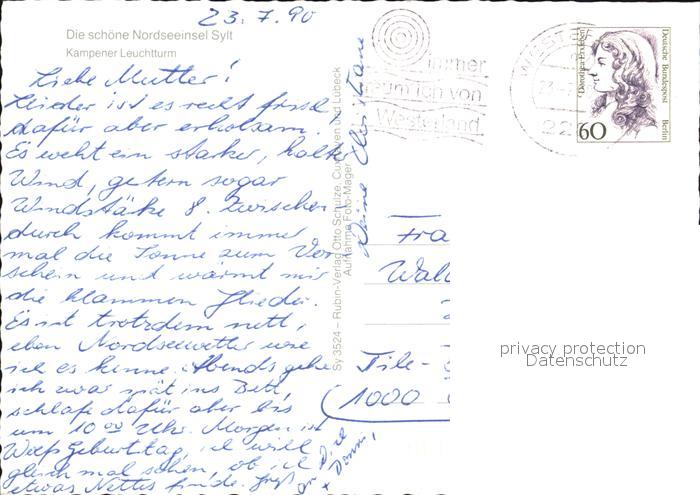 23.7.90
Die schöne Nordseeinsel Sylt
Kampener Leuchtturm
Liebe Mutter!
Leider ist es recht frisch
dafür aber erholsam.
Es weht ein starker, kalter
Wind, gestern sogar
Windstärke 8. Zwischen
durch kommt immer
mal die Sonne zum Vor
schein und wärmt mir
die klammen Glieder.
Es ist trotzdem nett,
eben Nordseewetter wie
ich es kenne. Abends gehe
ich zwar spät ins Bett,
schlafe dafür aber bis
um 10 00 Uhr. Morgen ist
Geburtstag, ich will
gleich mal sehen, ob ich
etwas Nettes finde.
Deine Christiane
Sy 3524 – Rubin-Verlag Otto Schulze, Cuxhaven und Lübeck
Aufnahme Foto-Mager
immer
träum ich von
Westerland
WESTE
22
Deutsche Bundespost
Berlin
60
Fra
Wal
File-
1000
privacy protection
Datenschutz